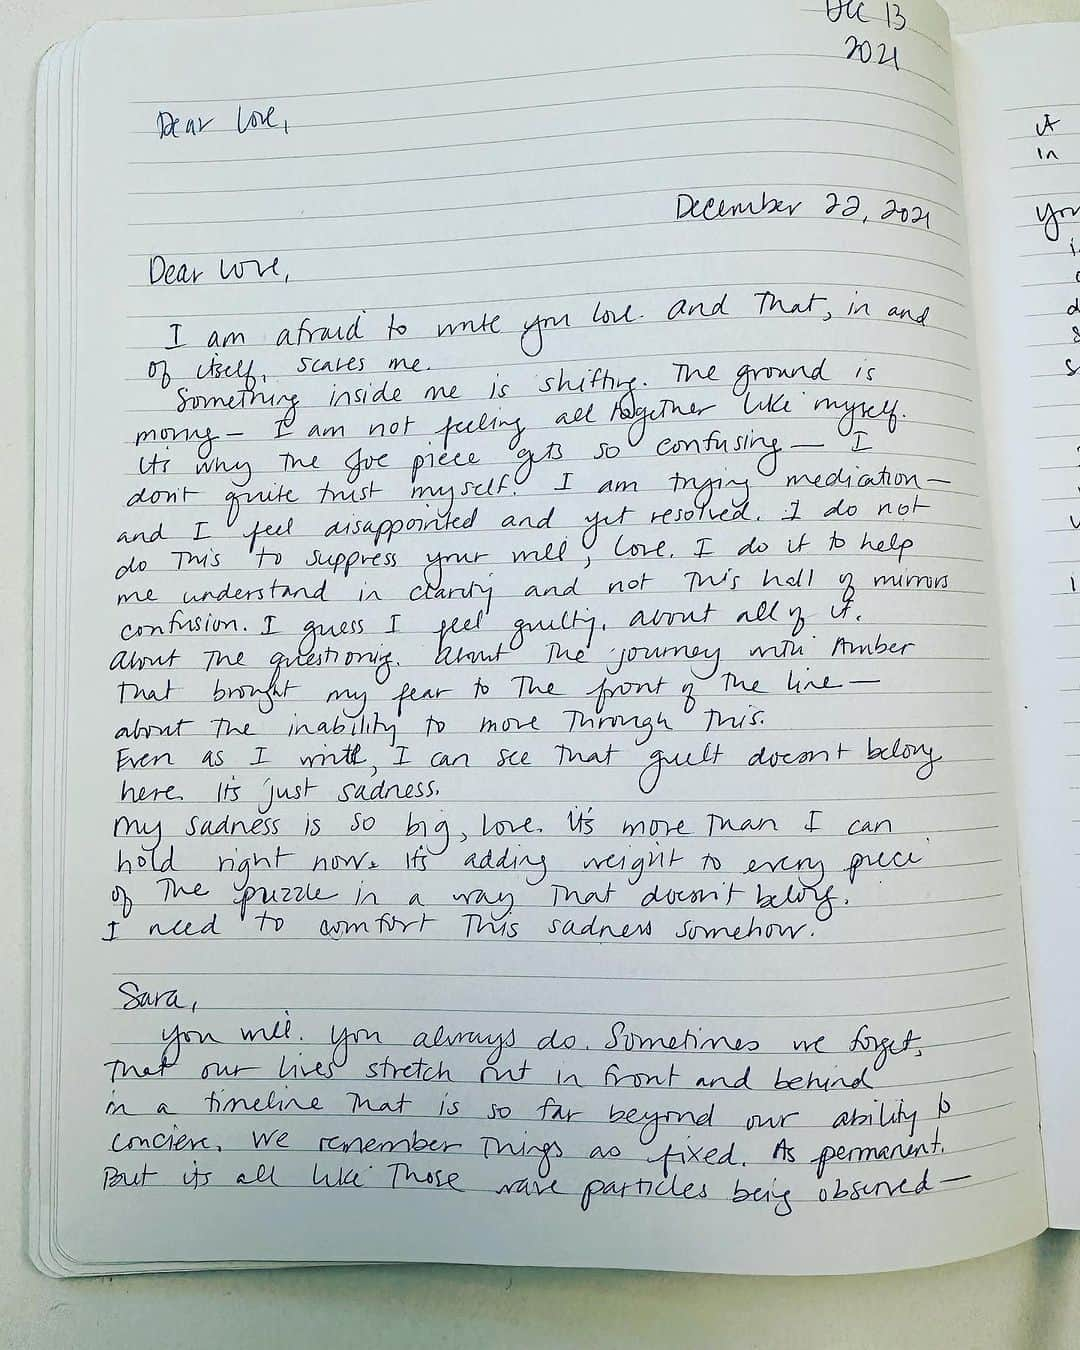 Dec 13
2021
Dear Love,
December 22, 2021
Dear Love,
I am afraid to write you love. And that, in and
of itself, scares me.
Something inside me is shifting. The ground is
moving — I am not feeling all together like myself.
Its why the Joe piece gets so confusing — I
don't quite trust myself. I am trying medication —
and I feel disappointed and yet resolved. I do not
do this to suppress your will, love. I do it to help
me understand in clarity and not this hall of mirrors
confusion. I guess I feel guilty, about all of it.
About the questioning. About the journey with Amber
that brought my fear to the front of the line —
about the inability to move through this.
Even as I write, I can see that guilt doesn't belong
here. It's just sadness.
My sadness is so big, love. It's more than I can
hold right now. It's adding weight to every piece
of the puzzle in a way that doesn't belong.
I need to comfort this sadness somehow.
Sara,
You will. You always do. Sometimes we forget,
that our lives stretch out in front and behind
in a timeline that is so far beyond our ability to
conciere. We remember things as fixed. As permanent.
But its all like those wave particles being observed —
A
in
you